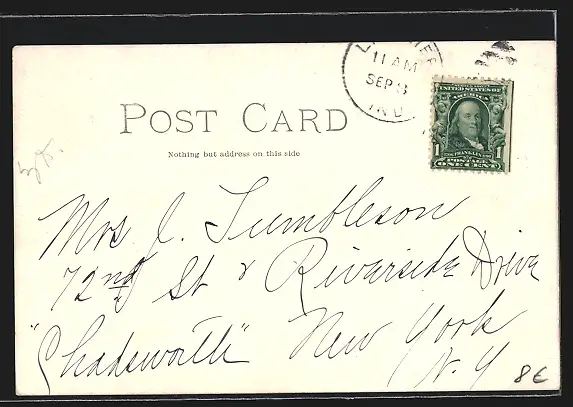 11 AM
SEP 3
IND
UNITED STATES OF
AMERICA
FRANKLIN
1 1
POSTAGE
ONE CENT
POST CARD
Nothing but address on this side
Mrs J. Tumbleson
72nd St & Riverside Drive
"Chadsworth" New York
N.Y
8€